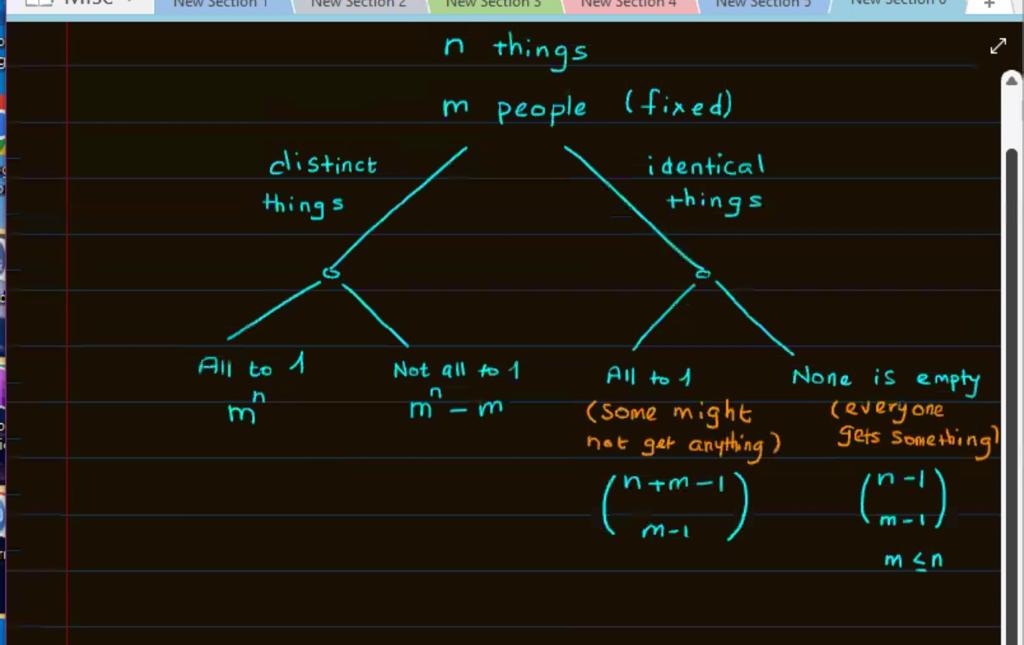 Misc
New Section 1
New Section 2
New Section 3
New Section 4
New Section 5
New Section 6
+
n things
m people (fixed)
distinct
things
identical
things
All to 1
m^n
Not all to 1
m^n - m
All to 1
(some might
not get anything)
(n+m-1
m-1)
None is empty
(everyone
gets something)
(n-1
m-1)
m ≤ n